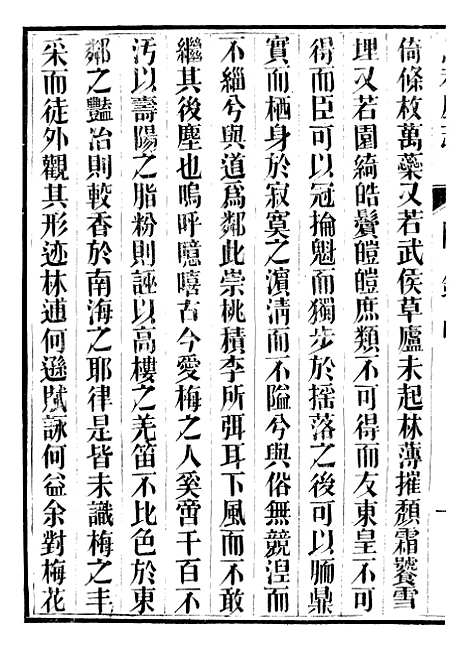 倚條枚萬蘂又若武侯草廬未起林薄摧頹霜饕雪
埋又若園綺皓鬢皚皚庶類不可得而友東皇不可
得而臣可以冠掄魁而獨步於搖落之後可以腼鼎
實而栖身於寂寞之濱淸而不隘兮與俗無競湼而
不緇兮與道爲鄰此崇桃積李所弭耳下風而不敢
繼其後塵也嗚呼噫嘻古今愛梅之人奚啻千百不
汚以壽陽之脂粉則誣以高樓之羌笛不比色於東
鄰之豔冶則較香於南海之耶律是皆未識梅之丰
采而徒外觀其形迹林逋何遜賦詠何益余對梅花